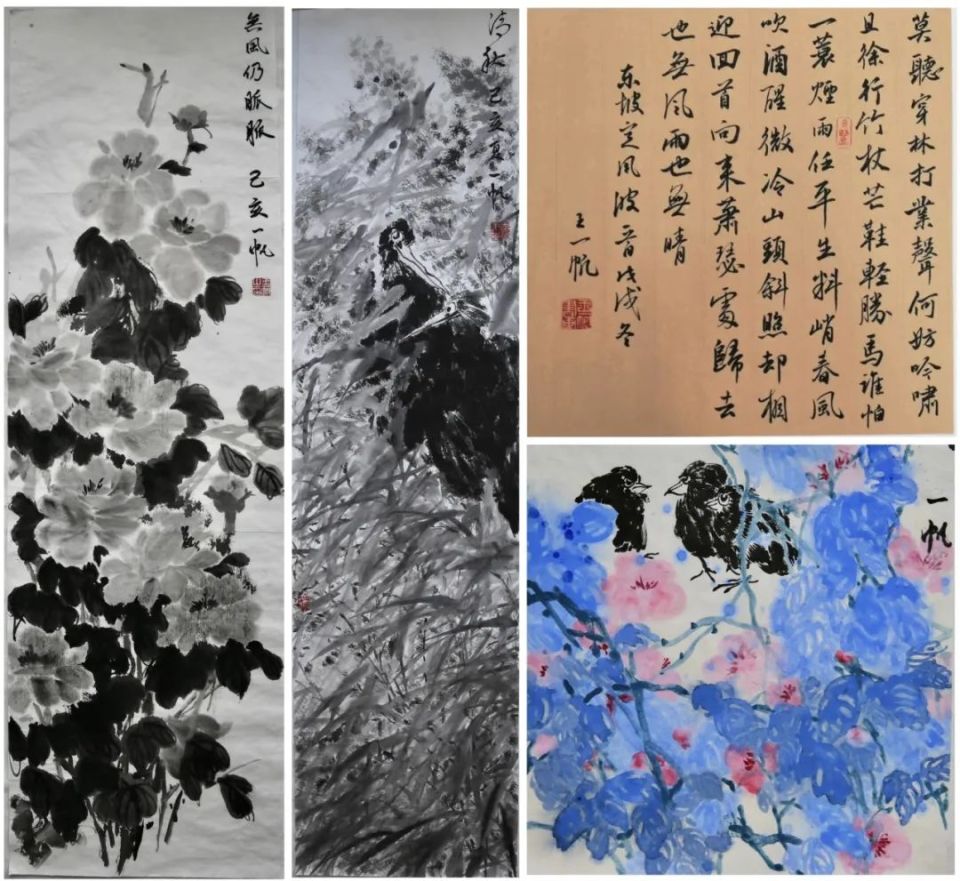 無風仍脈脈 己亥 一帆
清秋 己亥夏 一帆
莫聽穿林打業聲何妨吟嘯
且徐行竹杖芒鞋輕勝馬誰怕
一蓑煙雨任平生料峭春風
吹酒醒微冷山頭斜照却相
迎回首向來蕭瑟處歸去
也無風雨也無晴
東坡定風波一首戊戌冬
王一帆
一帆